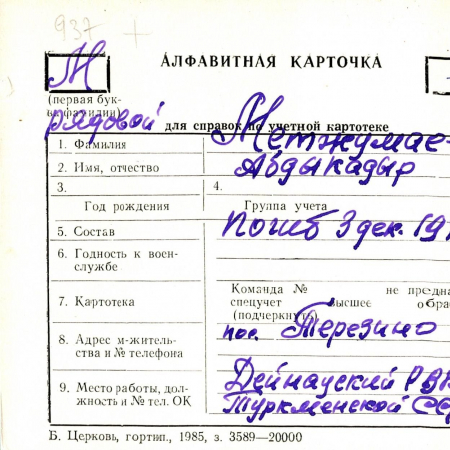 937 +
М
АЛФАВИТНАЯ КАРТОЧКА
(первая бук-
ва фамилии)
рядовой для справок по учетной картотеке
1. Фамилия Метжумае-
2. Имя, отчество Абдыкадыр
3. 4.
Год рождения Группа учета
5. Состав Погиб 3 дек. 19
6. Годность к воен-
службе
Команда № не предна
7. Картотека спецучет высшее обра
(подчеркнуть)
8. Адрес м-житель-
ства и № телефона пос. Терезино
9. Место работы, дол- Дейнауский РВК
жность и № тел. ОК Туркменской ССР
Б. Церковь, гортип., 1985, з. 3589—20000